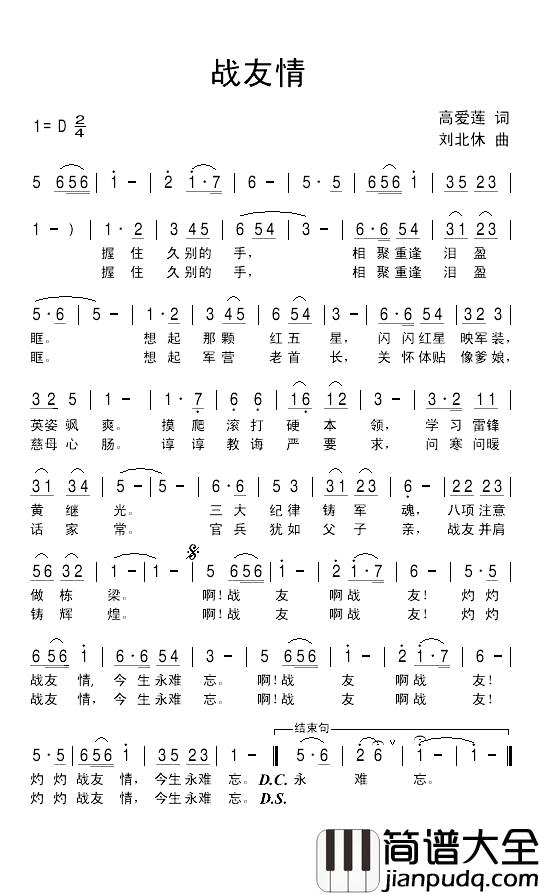 战友情
1=D 2/4
高爱莲 词
刘北休 曲
5 656 | 1 - | 2 1·7 | 6 - | 5·5 | 656 1 | 35 23 |
1 - ) | 1·2 | 3 45 | 6 54 | 3 - | 6·6 54 | 31 23 |
握 住 久别的 手， 相聚重逢 泪盈
握 住 久别的 手， 相聚重逢 泪盈
5·6 | 5 - | 1·2 | 3 45 | 6 54 | 3 - | 6·6 54 | 32 3 |
眶。 想起 那颗 红五 星， 闪闪红星 映军装，
眶。 想起 军营 老首 长， 关怀体贴 像爹娘，
32 5 | 1 - | 1·7 | 65 62 | 16 12 | 3 - | 3·2 11 |
英姿飒 爽。 摸爬 滚打 硬本 领， 学习雷锋
慈母心 肠。 谆谆 教诲 严要 求， 问寒问暖
31 34 | 5 - | 5 - | 6·5 | 53 | 31 23 | 6 - | 22 23 |
黄继 光。 三大 纪律 铸军 魂， 八项注意
话家 常。 官兵 犹如 父子 亲， 战友并肩
56 32 | 1 - | 1 - | 5 656 | 1 - | 2 1·7 | 6 - | 5·5 |
做栋 梁。 啊!战 友 啊战 友! 灼灼
铸辉 煌。 啊!战 友 啊战 友! 灼灼
656 1 | 6·6 54 | 3 - | 5 656 | 1 - | 2 1·7 | 6 - |
战友 情， 今生永难 忘。 啊!战 友 啊战 友!
战友 情， 今生永难 忘。 啊!战 友 啊战 友!
结束句
5·5 | 656 1 | 35 23 | 1 - ‖ 5·6 | 2 6 | 1 - | 1 - ‖
灼灼 战友 情， 今生永难 忘。D.C. 永 难 忘。
灼灼 战友 情， 今生永难 忘。D.S.
简谱大全
jianpudq.com